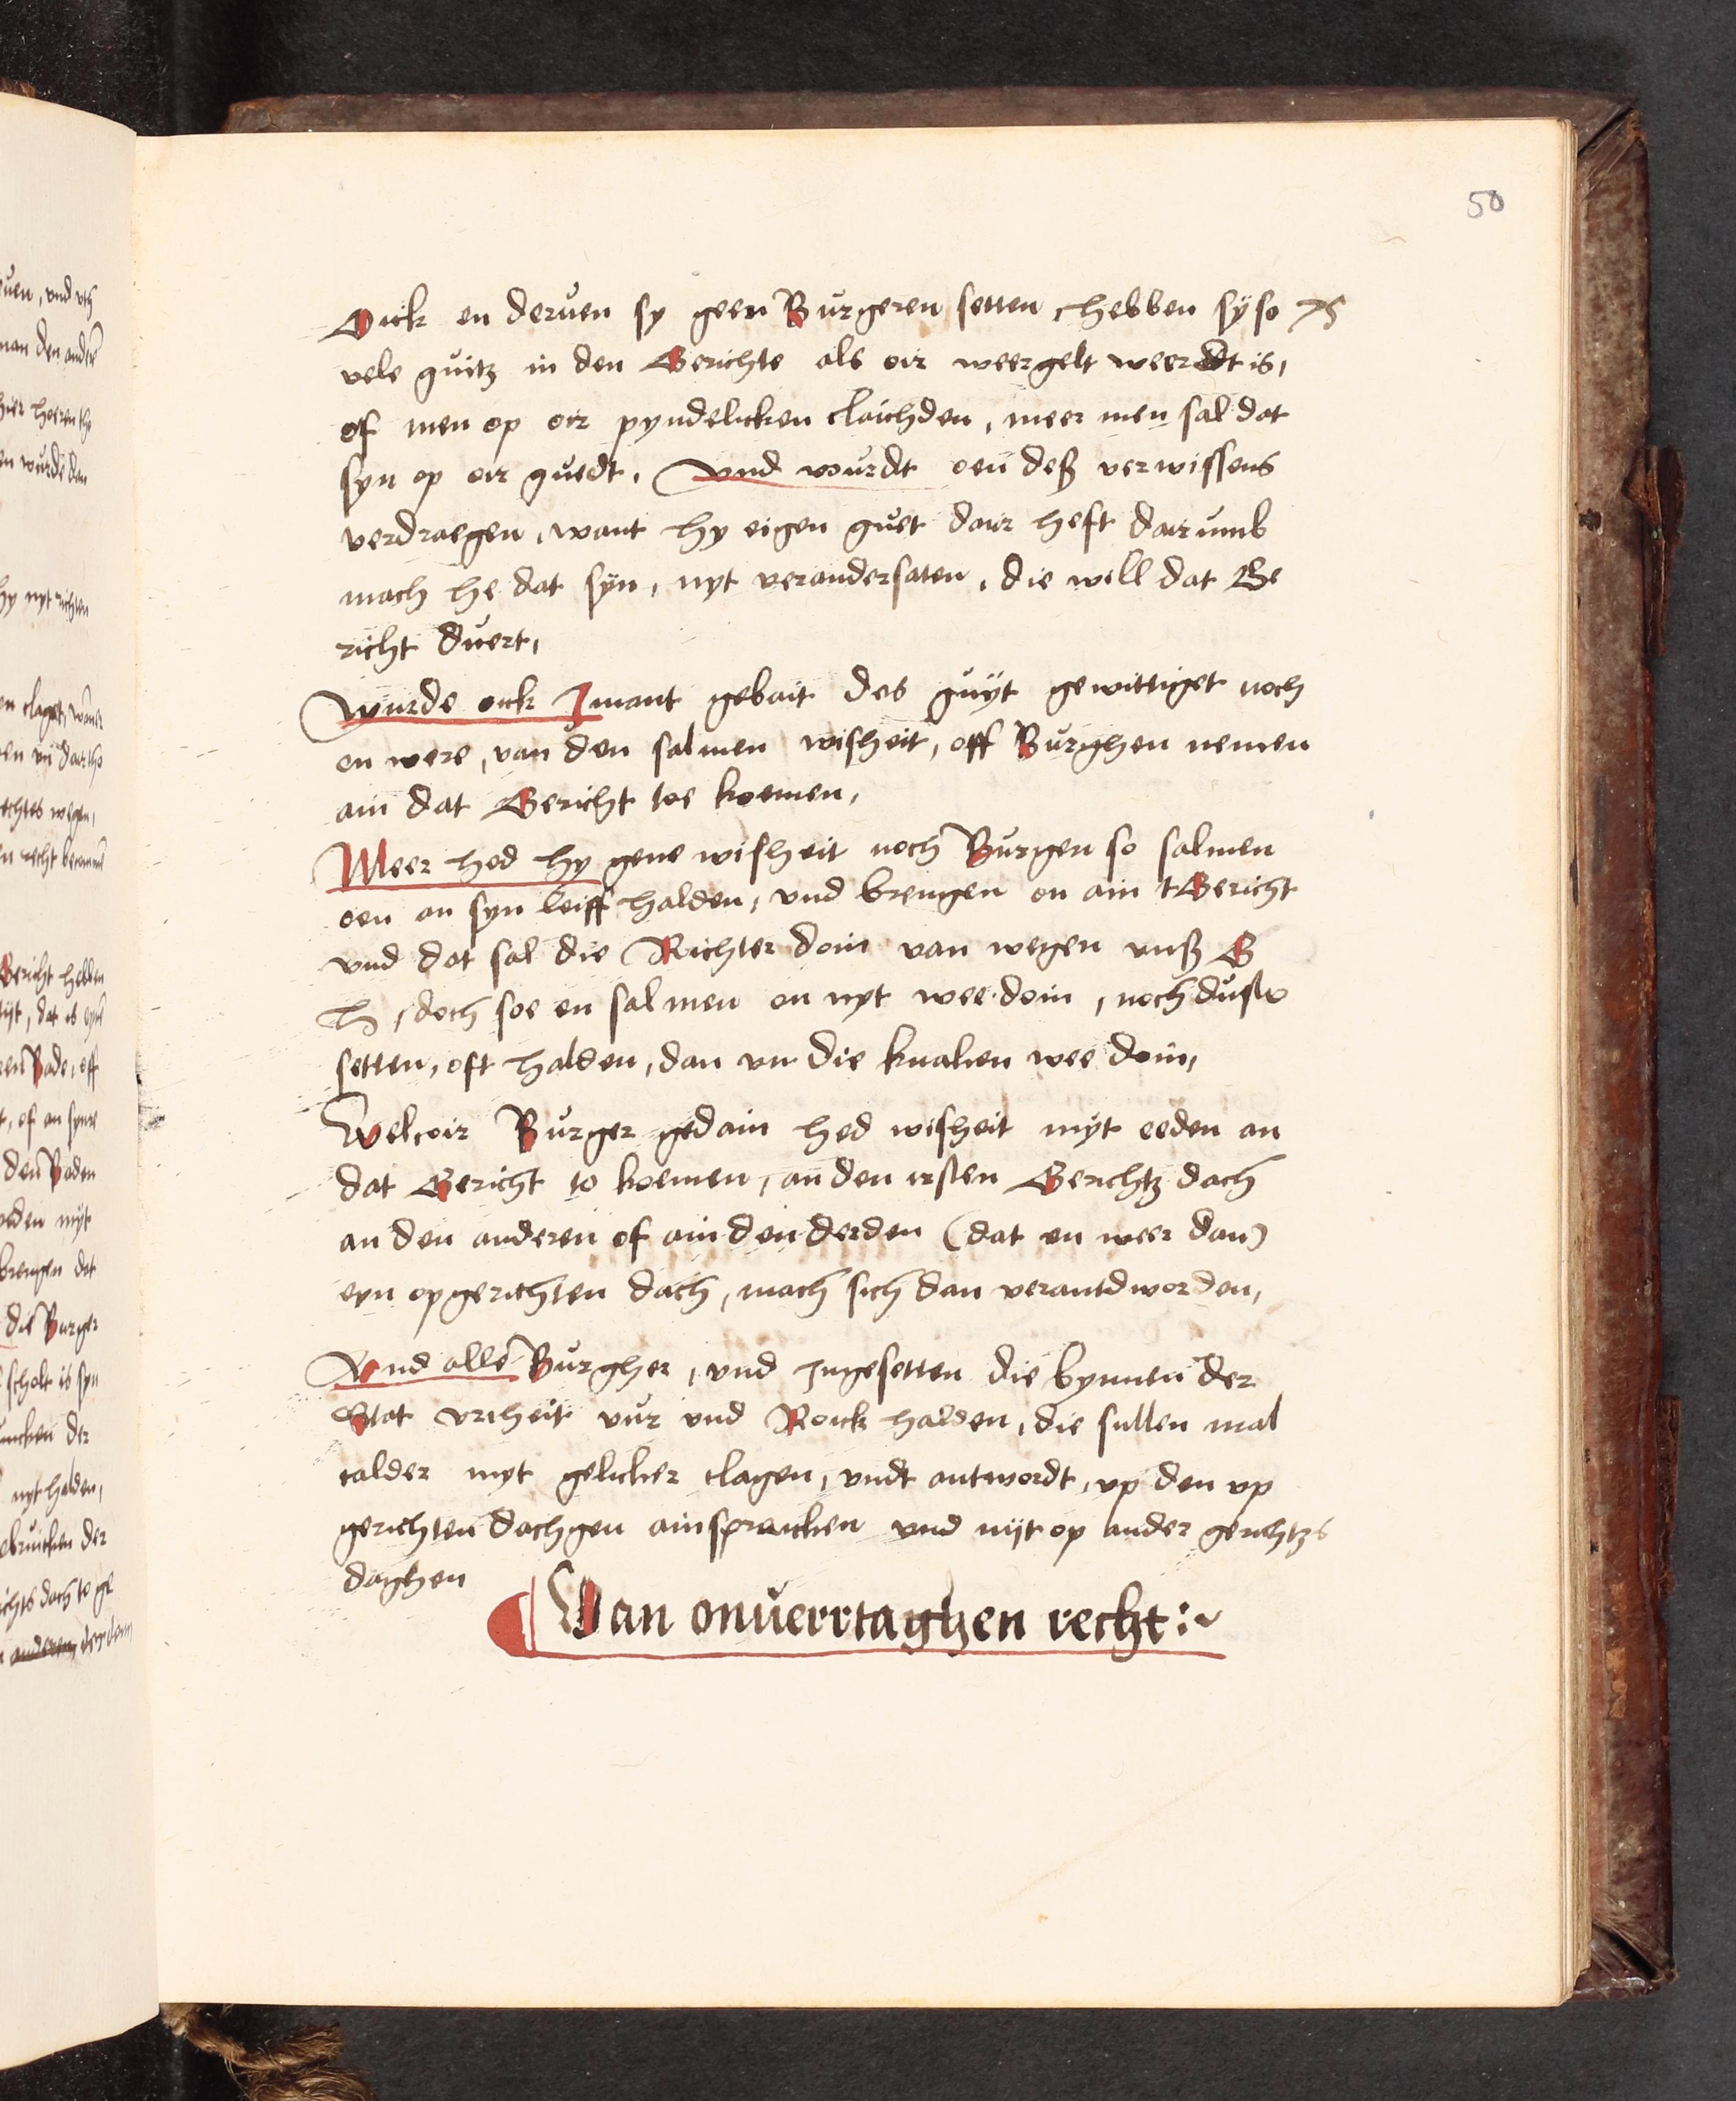 50
Oick en deruen sy geen Burgeren setten, hebben sy so
vele guitz in den Gerichte als oir weergelt weerdt is,
of men op oir pyndelicken claichden, meer men sal dat
syn op oir guedt. Vnd wurdt oen deß verwissens
verdraegen, want hy eigen guet dair heft dair umb
mach he dat syn, nyt verandersaten, die well dat Ge
richt duert,
Wurde oick Imant gebait des guyt gewittiget noch
en were, van den salmen wisheit, off Burghen nemen
ain dat Gericht toe koemen,
Meer hed hy gene wisheit noch Burgen so salmen
oen an syn leiff halden, vnd brengen on ain tGericht
vnd dat sal die Richter doin van wegen vnß G
h, doch soe en salmen on nyt wee doin, noch
setten, oft halden, dan vn die knaken wee doin,
Welcoir Burger gedain hed wisheit myt eeden an
dat Gericht to koemen, an den irsten Gerichtz dach
an den anderen of ain den derden (dat en weer dan)
eyn opgerichten dach, mach sich dan verantdworden,
Vnd alle Burgher, vnd Ingesetten die bynnen der
Stat vriheit vur vnd Roick halden, die sullen mal
calder myt gelicker clagen, vndt antwordt, vp den vp
gerichten dachgen ainspraicken vnd nijt op ander gerichtzs
daghen
Van onuerrtaghen recht:~